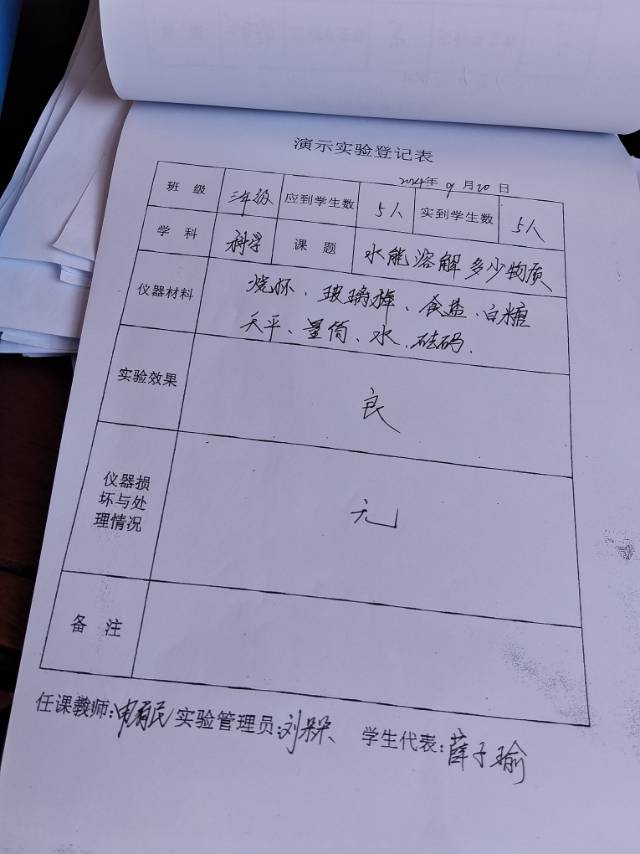 演示实验登记表
2024年 9 月 20 日
班 级 三年级 应到学生数 5人 实到学生数 5人
学 科 科学 课 题 水能溶解多少物质
仪器材料 烧杯、玻璃棒、食盐、白糖
天平、量筒、水、砝码.
实验效果 良
仪器损
坏与处
理情况 无
备 注
任课教师: 实验管理员:刘朵朵、 学生代表:薛子瑜